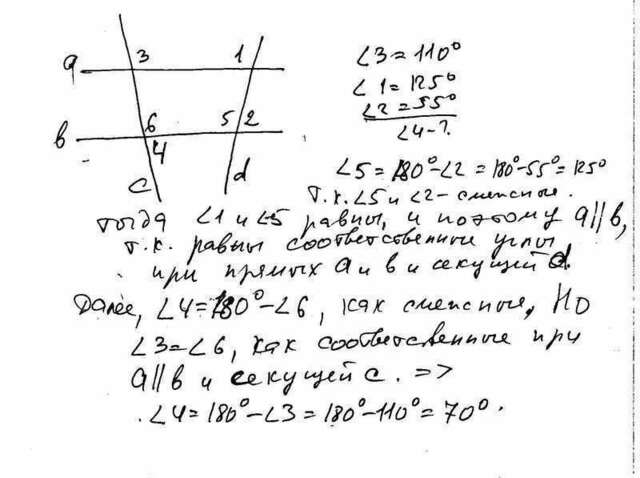 a 3 1
b 6 5 2
4
c d
∠3 = 110°
∠1 = 125°
∠2 = 55°
∠4 - ?
∠5 = 180° - ∠2 = 180° - 55° = 125°
т.к. ∠5 и ∠2 - смежные.
тогда ∠1 и ∠5 равны, и поэтому a || b,
т.к. равны соответственные углы
при прямых a и b и секущей d.
Далее, ∠4 = 180° - ∠6, как смежные, Но
∠3 = ∠6, как соответственные при
a || b и секущей c. =>
∠4 = 180° - ∠3 = 180° - 110° = 70°.